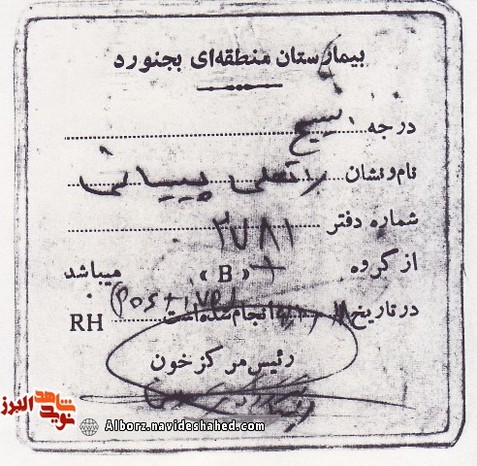 بیمارستان منطقه‌ای بجنورد
درجه بسیج
نام و نشان
شماره دفتر ۲۷۸۱
از گروه « B » + میباشد
در تاریخ انجام شده است Positive RH
رئیس مرکز خون
نوید شاهد البرز
Alborz.navideshahed.com